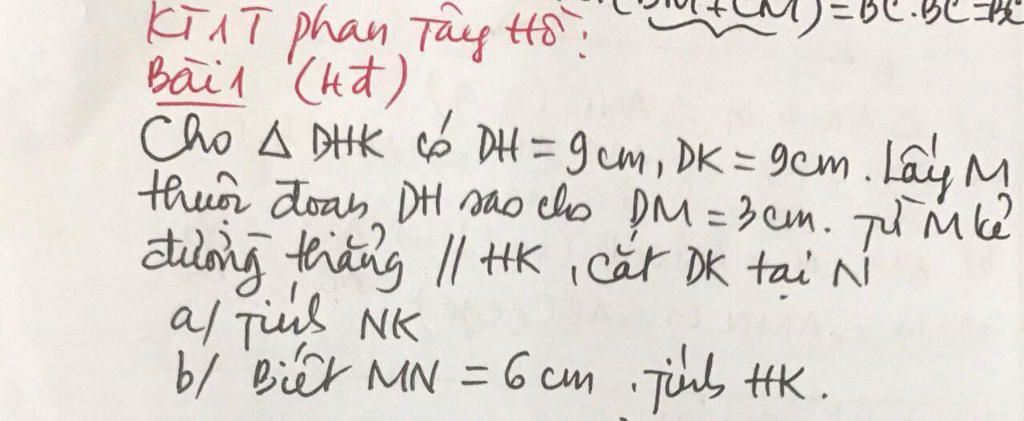 (BM+CM) = BC.BC = BC
KT 1T phan Tây Hồ:
Bài 1 (4đ)
Cho Δ DHK có DH = 9cm, DK = 9cm. Lấy M
thuộc đoạn DH sao cho DM = 3cm. Từ M kẻ
đường thẳng // HK, cắt DK tại N
a/ Tính NK
b/ Biết MN = 6cm. Tính HK.